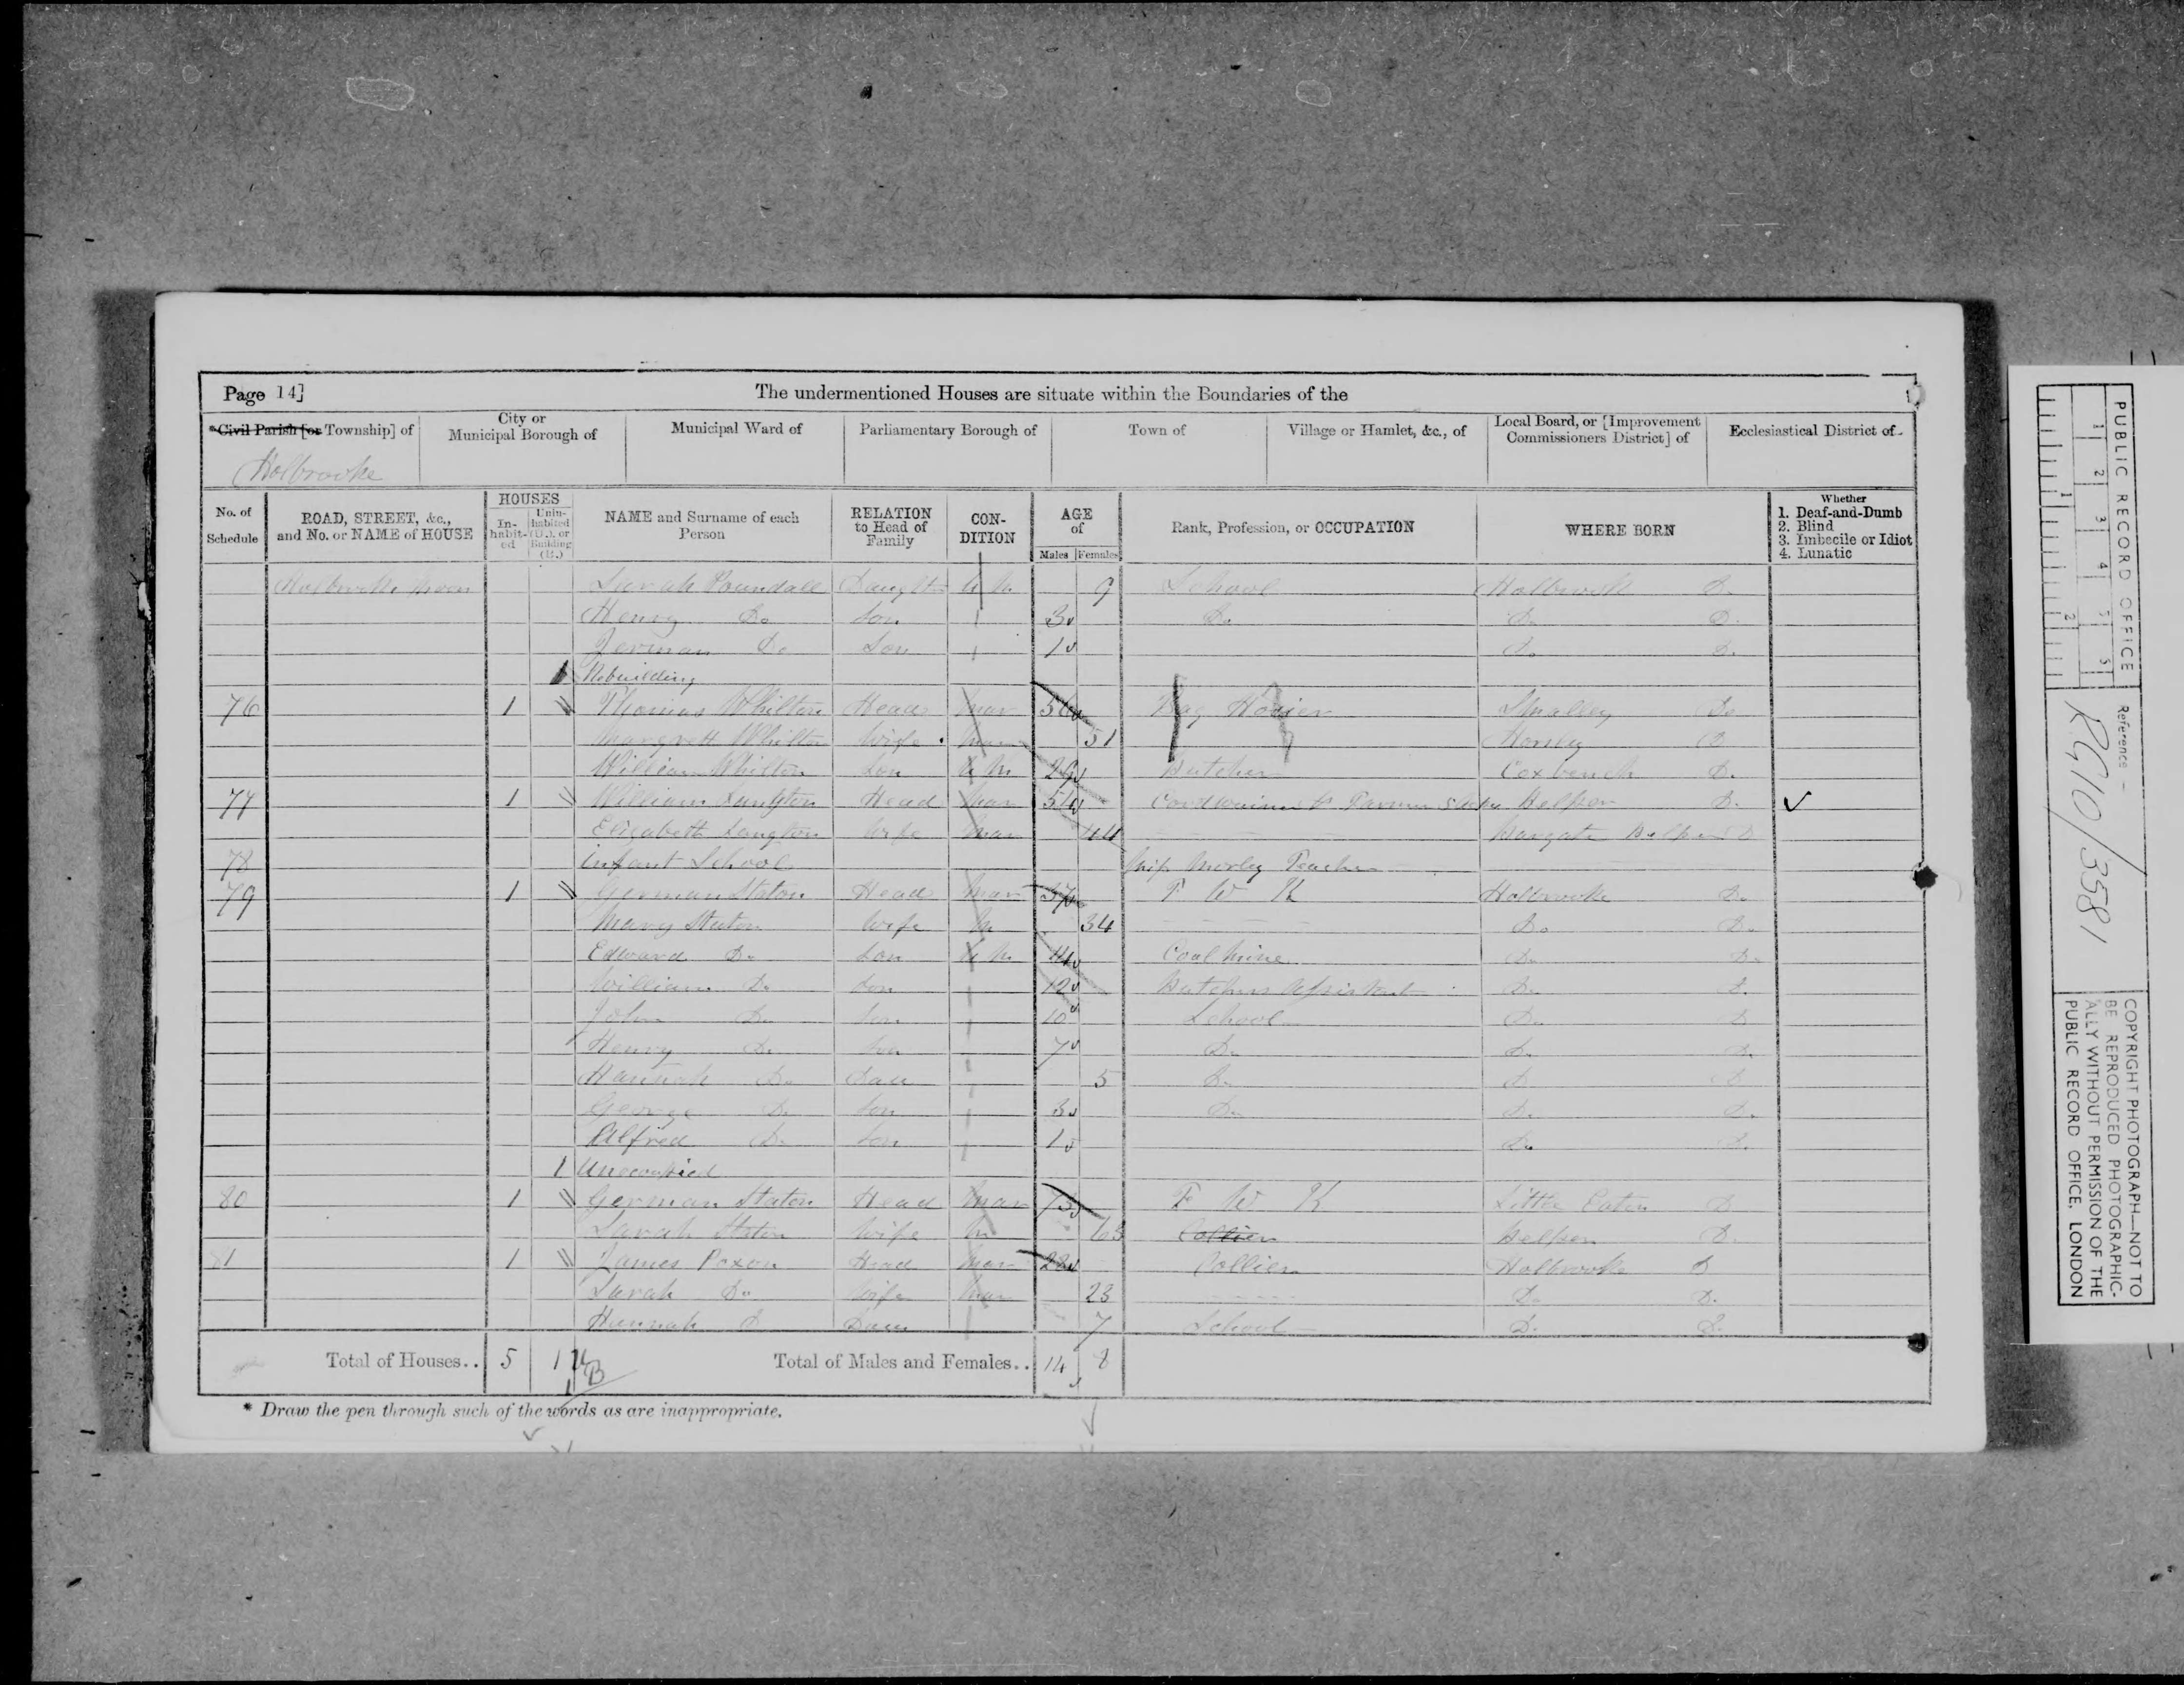 Page 14]
The undermentioned Houses are situate within the Boundaries of the
*Civil Parish [or Township] of
City or Municipal Borough of
Municipal Ward of
Parliamentary Borough of
Town of
Village or Hamlet, &c., of
Local Board, or [Improvement Commissioners District] of
Ecclesiastical District of
Holbrooke
No. of Schedule
ROAD, STREET, &c., and No. or NAME of HOUSE
HOUSES
In-habit-ed
Unin-habited (U.), or Building (B.)
NAME and Surname of each Person
RELATION to Head of Family
CON-DITION
AGE of
Males Females
Rank, Profession, or OCCUPATION
WHERE BORN
Whether
1. Deaf-and-Dumb
2. Blind
3. Imbecile or Idiot
4. Lunatic
Sarah Poundall Daughter U M 9 School Holbrook D.
Henry Do Son 3 Do Do D.
Jerman Do Son 1 Do D.
1 Rebuilding
76 1 Thomas Whilton Head Mar 56 Hosier Smalley Do
Margrett Whilton Wife Mar 51 Horsley D
William Whilton Son U M 29 Butcher Coxbench D.
77 1 William Langton Head Mar 54 Cordwainer Belper D.
Elizabeth Langton Wife Mar 44 Belper D
78 Infant School Miss Morley Teacher
79 1 German Staton Head Mar 37 F W K Holbrooke D.
Mary Staton Wife M 34 Do D.
Edward Do Son U M 14 Coal Mine Do D.
William Do Son 12 Butchers Assistant Do D.
John Do Son 10 School Do D
Henry Do Son 7 Do Do D.
Hannah Do Dau 5 Do D D
George Do Son 3 Do Do D.
Alfred Do Son 1 Do D.
1 Unoccupied
80 1 German Staton Head Mar 73 F W K Little Eaton D
Sarah Staton Wife M 65 Collier Belper D.
81 1 James Poxon Head Mar 28 Collier Holbrooke D
Sarah Do Wife Mar 23 Do D.
Hannah D Dau 7 School D. D.
Total of Houses.. 5 1 U 1 B
Total of Males and Females.. 14 8
* Draw the pen through such of the words as are inappropriate.
PUBLIC RECORD OFFICE
1 2 3 4 5 6
1 2
Reference:-
RG10/3581
COPYRIGHT PHOTOGRAPH—NOT TO BE REPRODUCED PHOTOGRAPHIC-ALLY WITHOUT PERMISSION OF THE PUBLIC RECORD OFFICE, LONDON